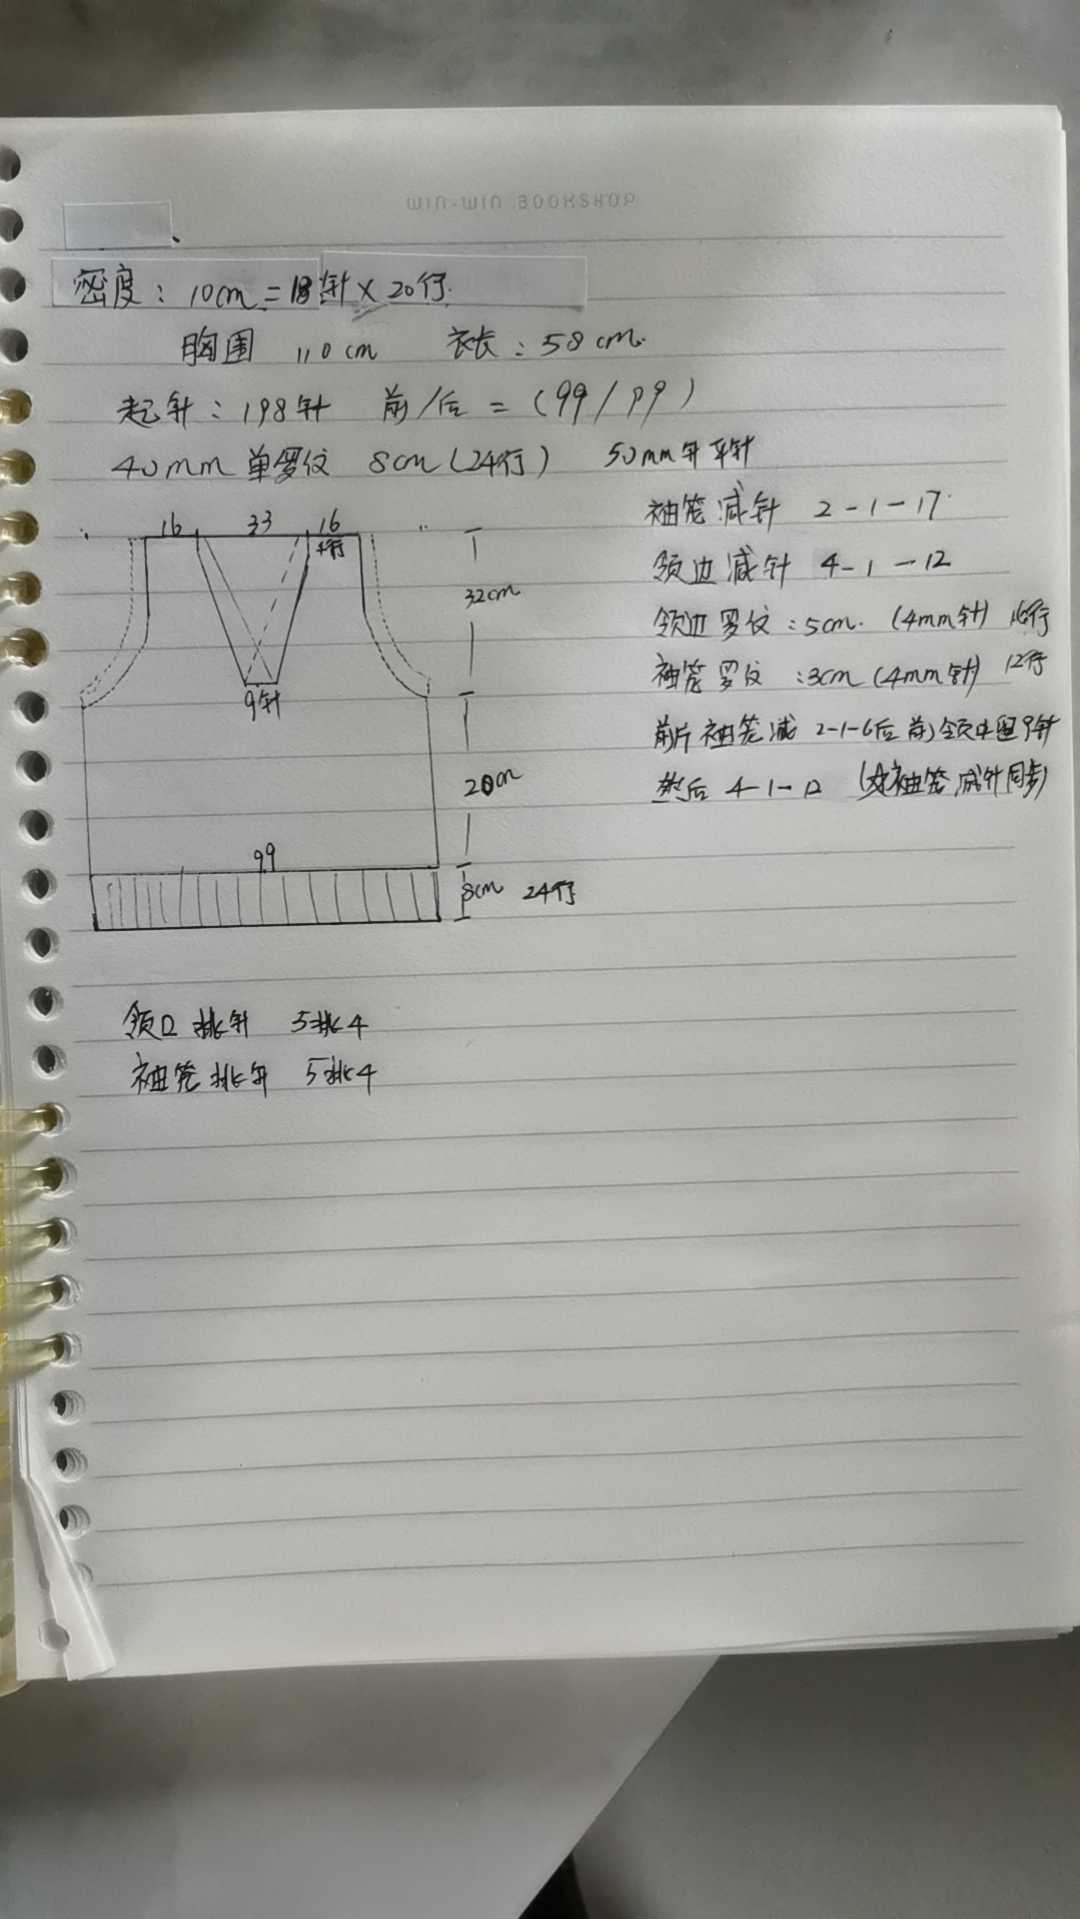 WIN-WIN BOOKSHOP
密度：10cm=18针×20行.
胸围 110cm 衣长：58cm.
起针：198针 前/后=(99/99)
40mm 单罗纹 8cm(24行) 50mm针平针
16 33 16
32cm
9针
20cm
99
8cm 24行
袖笼减针 2-1-17
领边减针 4-1-12
领边罗纹：5cm. (4mm针) 16行
袖笼罗纹：3cm (4mm针) 12行
前片袖笼减 2-1-6后前领中留9针
然后 4-1-12 (袖笼减针同步)
领口挑针 5挑4
袖笼挑针 5挑4